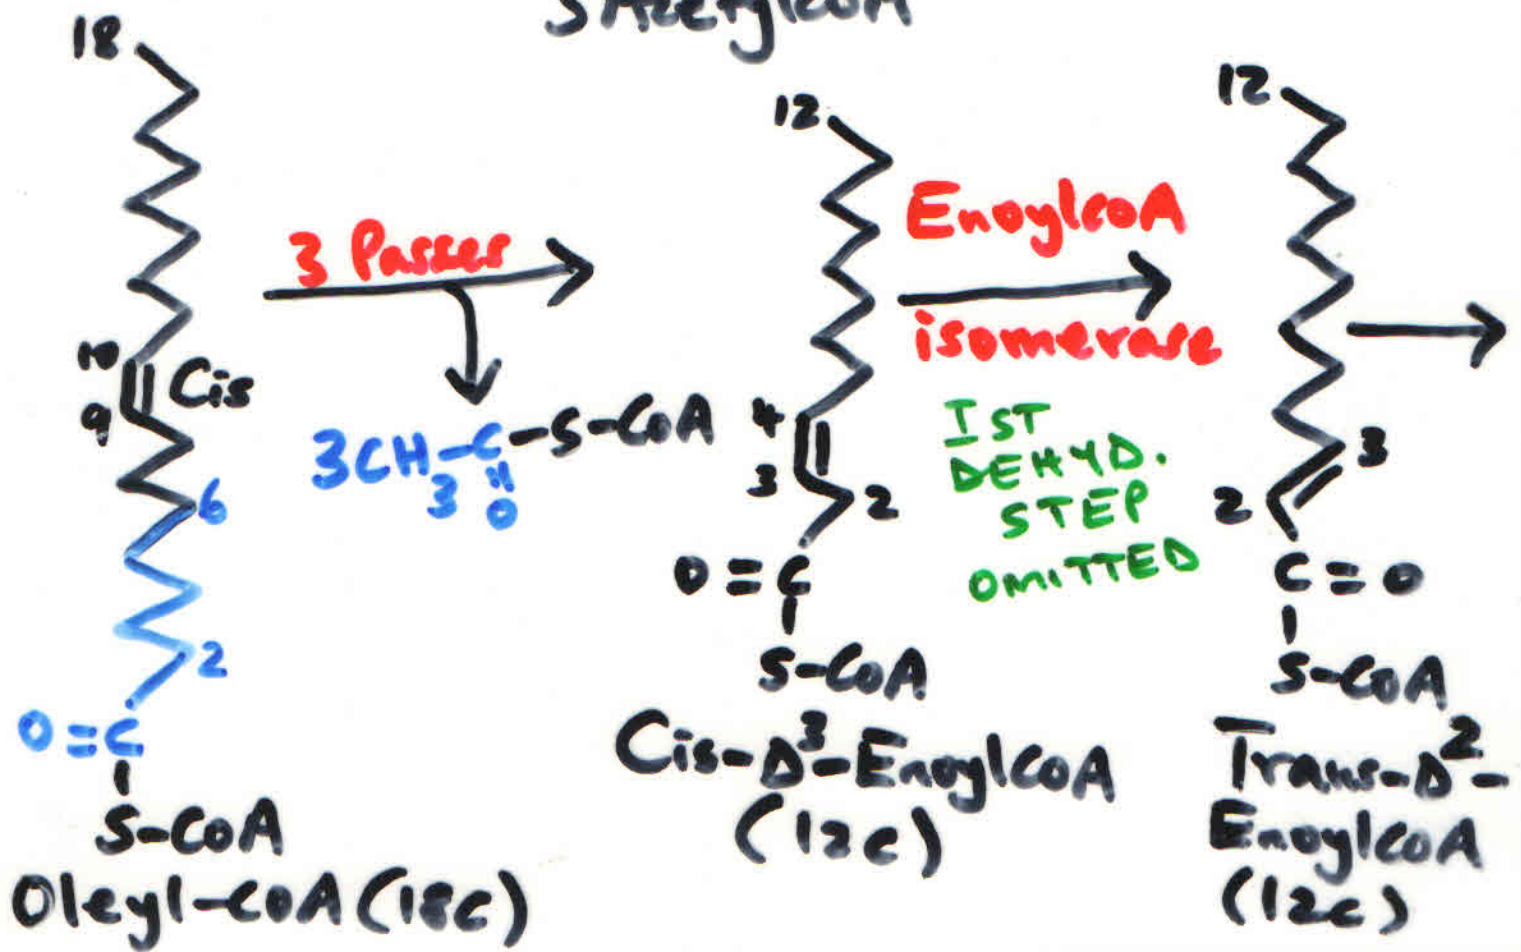 5 AcetylcoA
18
10
9
Cis
6
2
O=C
S-CoA
Oleyl-CoA (18c)
3 Passes
3CH3-C-S-CoA
O
12
4
3
2
O=C
S-CoA
Cis-Δ3-EnoylCoA
(12c)
EnoylcoA
isomerase
IST
DEHYD.
STEP
OMITTED
12
3
2
C=O
S-CoA
Trans-Δ2-
EnoylCoA
(12c)